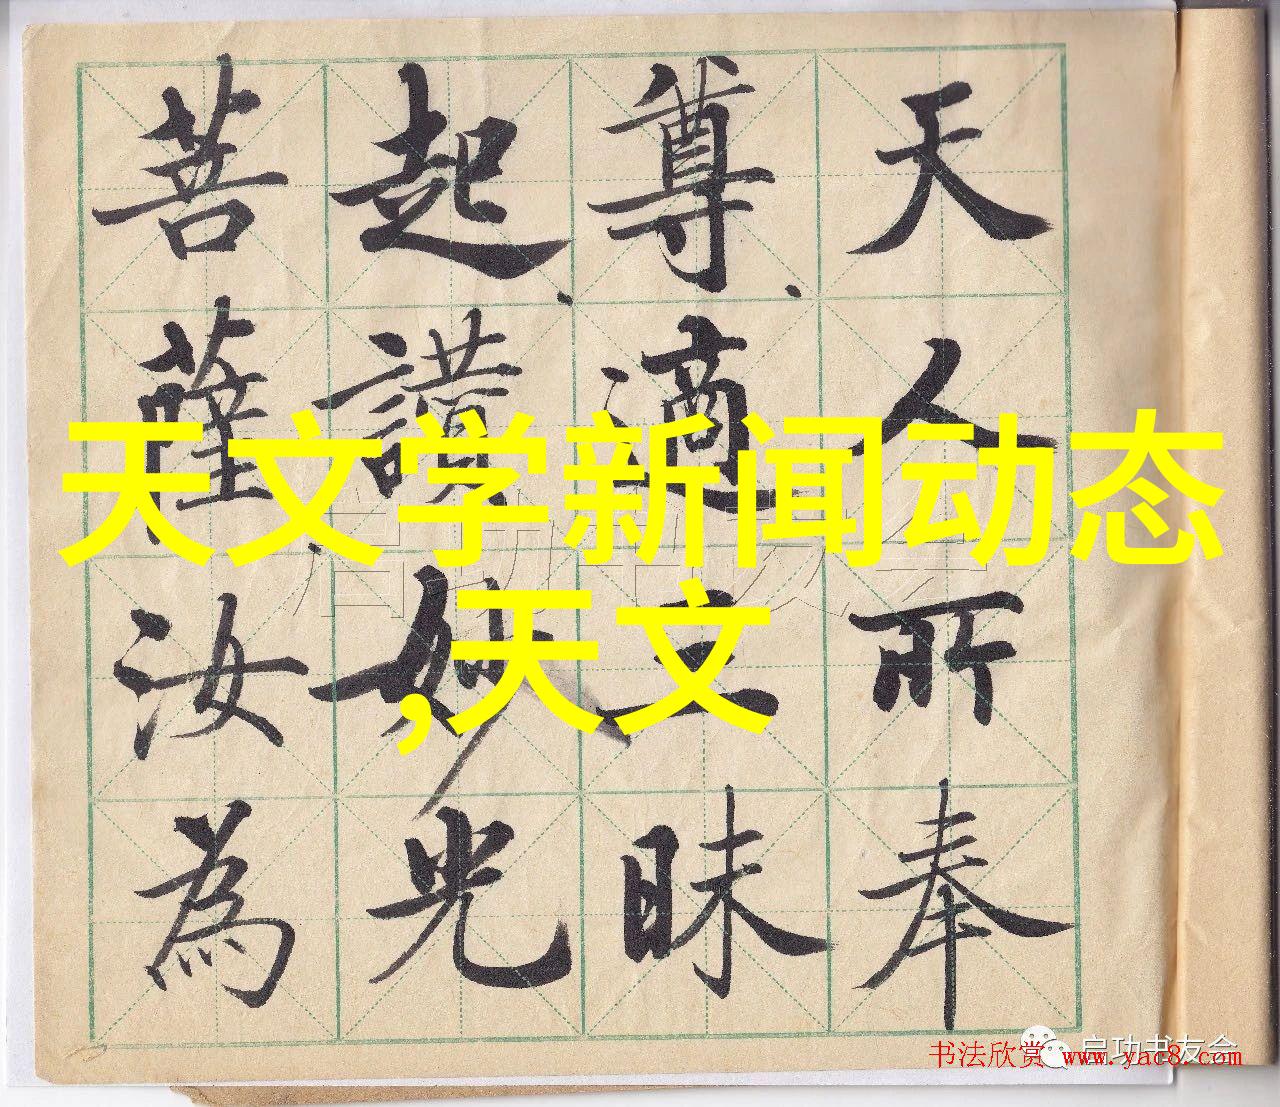 天人所奉
尊適三昧
起讚妙光
菩薩汝為
天文学新闻动态
,天文
启功书友会
启功书友会
书法欣赏 www.yac8.com